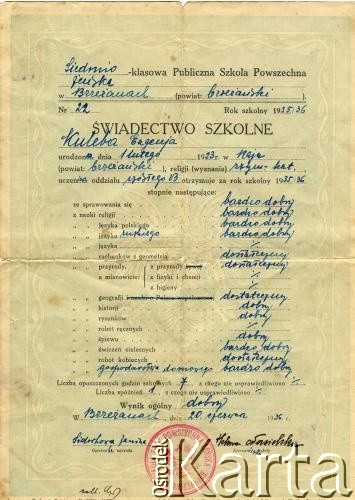 Siedmio-klasowa Publiczna Szkoła Powszechna
żeńska
w Brzeżanach (powiat: brzeżański).
Nr 22 Rok szkolny 1935/36
ŚWIADECTWO SZKOLNE
Kuleba Eugenja
urodzona dnia 1 lutego 1923 r. w
(powiat: brzeżański), religii (wyznania) rzym-kat.
uczenica oddziału szóstego B otrzymuje za rok szkolny 1935/36
stopnie następujące:
ze sprawowania się bardzo dobry
z nauki religii bardzo dobry
" " języka polskiego bardzo dobry
" " języka ruskiego bardzo dobry
" " języka
" " rachunków z geometrią dostateczny
" " przyrody, z przyrody żywej dostateczny
a mianowicie: z fizyki i chemii
z higieny
" " geografii dostateczny
" " historii dobry
" " rysunków dobry
" " robót ręcznych
" " śpiewu dobry
" " ćwiczeń cielesnych bardzo dobry
" " robót kobiecych dostateczny
" " gospodarstwa domowego bardzo dobry
Liczba opuszczonych godzin szkolnych 7 z czego nie usprawiedliwiono
Liczba spóźnień 1 z czego nie usprawiedliwiono
Wynik ogólny dobry
w Brzeżanach dnia 20 czerwca 1936 r.
Ośrodek
Karta